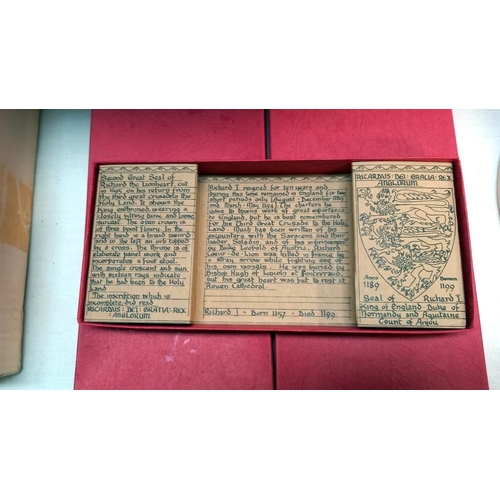 Second Great Seal of
Richard the Lionheart, cut
in 1195 on his return from
the third great crusade to the
Holy Land. It shows the
King enthroned, wearing a
closely fitting tunic and loose
surcoat. The open crown is
of three point fleury. In the
right hand is a broad sword
and in the left an orb topped
by a cross. The throne is of
elaborate panel work and
incorporates a foot stool.
The single crescent and sun
with sixteen rays indicate
that he had been to the Holy
Land
The inscription which is
incomplete, but read
RICARDUS: DEI: GRATIA: REX
ANGLORUM.
Richard I reigned for ten years and
during this time remained in England for two
short periods only (August - December 1189
and March - May 1194). The charters he
gave to towns were of great importance
to England, but he is best remembered
for his Third Great Crusade to the Holy
Land. Much has been written of his
encounters with the Saracens and their
leader Saladin, and of his
by Duke Leopold of Austria. Richard
Coeur-de-Lion was killed in France by
a stray arrow while fighting one of
his own vassals. He was buried by
Bishop Hugh of Lincoln at Fontevrault,
but his great heart was put to rest at
Rouen Cathedral.
Richard I - Born 1157 - Died 1199
RICARDUS: DEI: GRATIA: REX
ANGLORUM
Anno Domini
1189 1199
Seal of Richard I
King of England Duke of
Normandy and Aquitaine
Count of Anjou